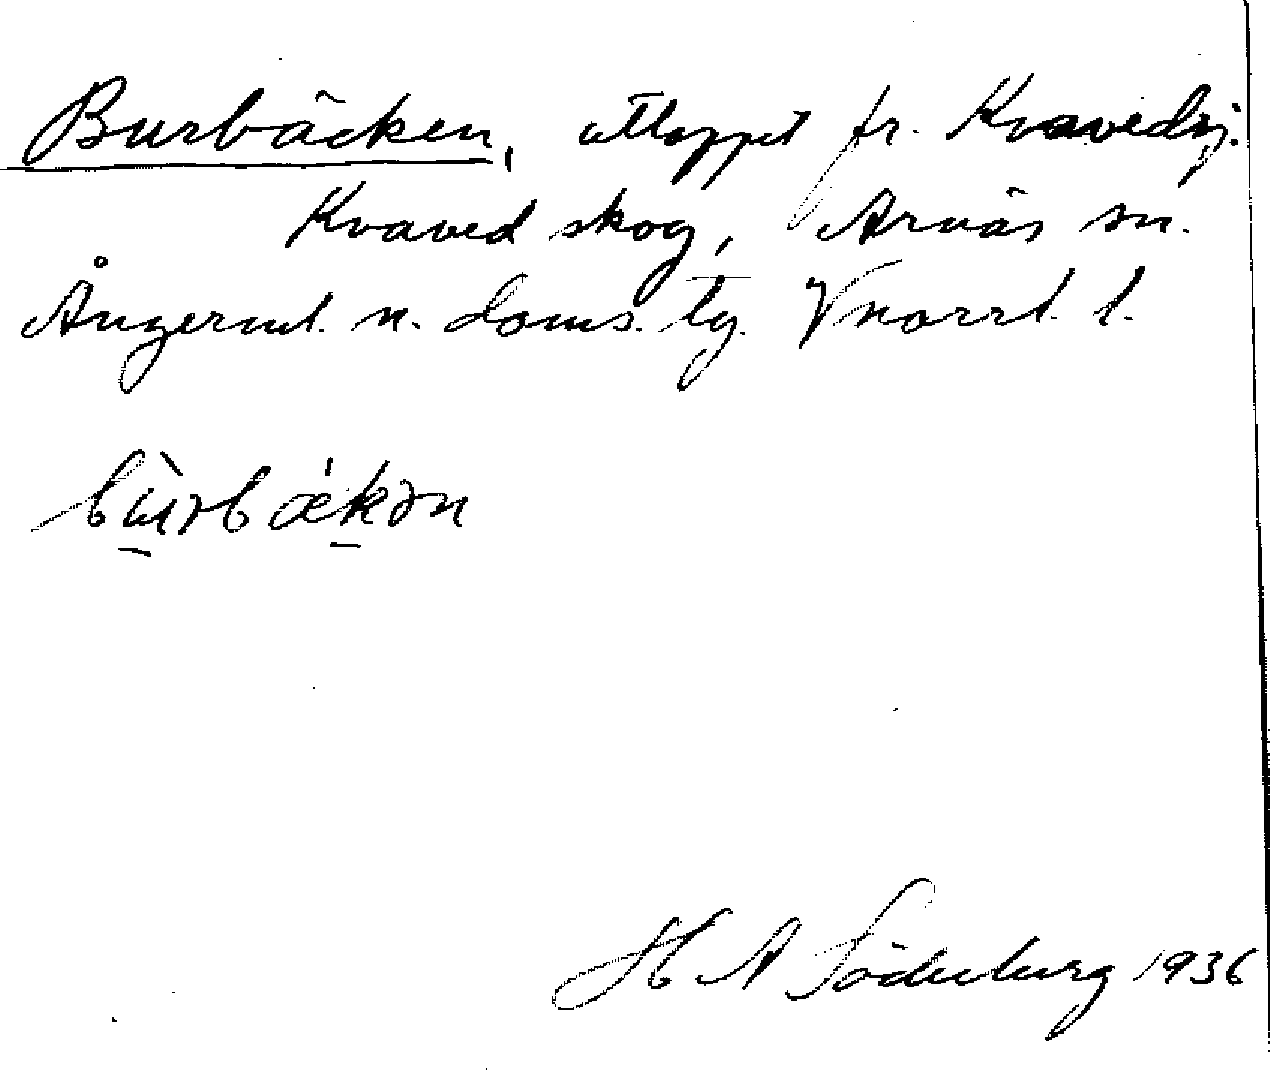 Burbäcken, utloppet fr. Kvavedsj.
Kvaved skog, Arnäs sn.
Ångerml. n. doms. tg. Vnorrl. l.
bùrbækən
H A Söderberg 1936